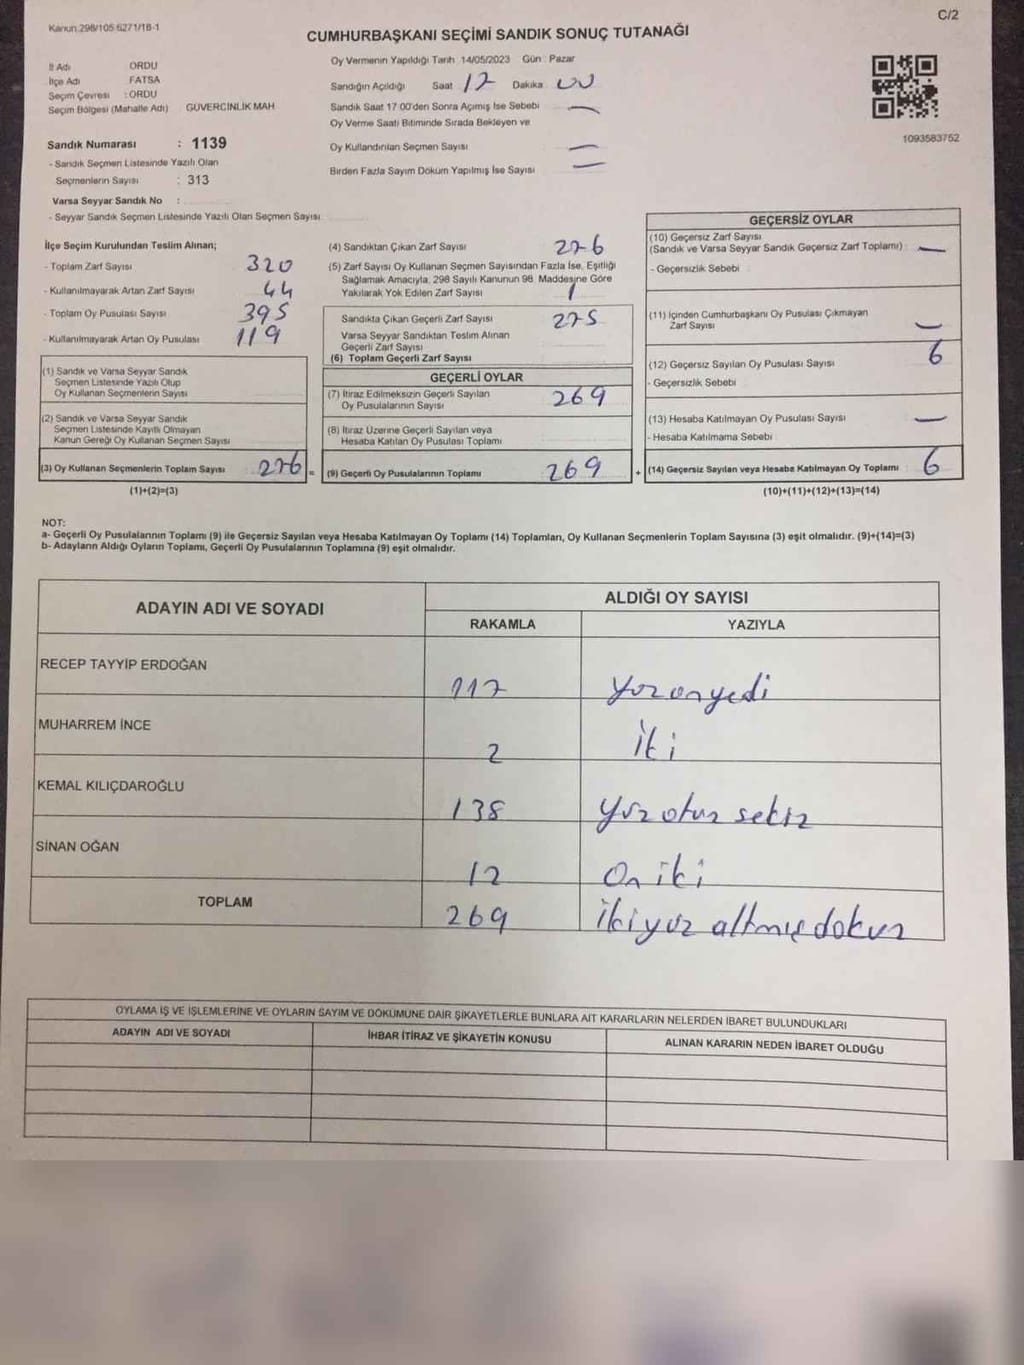 Kanun 298/105 6271/18-1
C/2
CUMHURBAŞKANI SEÇİMİ SANDIK SONUÇ TUTANAĞI
İl Adı ORDU
İlçe Adı FATSA
Seçim Çevresi : ORDU
Seçim Bölgesi (Mahalle Adı) GÜVERCİNLİK MAH
Oy Vermenin Yapıldığı Tarih 14/05/2023 Gün : Pazar
Sandığın Açıldığı Saat 17 Dakika 00
Sandık Saat 17 00'den Sonra Açımış İse Sebebi —
Oy Verme Saati Bitiminde Sırada Bekleyen ve
Oy Kullandırılan Seçmen Sayısı —
Birden Fazla Sayım Döküm Yapılmış İse Sayısı —
1093583752
Sandık Numarası : 1139
- Sandık Seçmen Listesinde Yazılı Olan
Seçmenlerin Sayısı : 313
Varsa Seyyar Sandık No :
- Seyyar Sandık Seçmen Listesinde Yazılı Olan Seçmen Sayısı
İlçe Seçim Kurulundan Teslim Alınan;
- Toplam Zarf Sayısı 320
- Kullanılmayarak Artan Zarf Sayısı 44
- Toplam Oy Pusulası Sayısı 395
- Kullanılmayarak Artan Oy Pusulası 119
(1) Sandık ve Varsa Seyyar Sandık
Seçmen Listesinde Yazılı Olup
Oy Kullanan Seçmenlerin Sayısı
(2) Sandık ve Varsa Seyyar Sandık
Seçmen Listesinde Kayıtlı Olmayan
Kanun Gereği Oy Kullanan Seçmen Sayısı
(3) Oy Kullanan Seçmenlerin Toplam Sayısı 276 =
(1)+(2)=(3)
(4) Sandıktan Çıkan Zarf Sayısı 276
(5) Zarf Sayısı Oy Kullanan Seçmen Sayısından Fazla İse, Eşitliği
Sağlamak Amacıyla, 298 Sayılı Kanunun 98. Maddesine Göre
Yakılarak Yok Edilen Zarf Sayısı 1
Sandıkta Çıkan Geçerli Zarf Sayısı 275
Varsa Seyyar Sandıktan Teslim Alınan
Geçerli Zarf Sayısı
(6) Toplam Geçerli Zarf Sayısı
GEÇERLİ OYLAR
(7) İtiraz Edilmeksizin Geçerli Sayılan
Oy Pusulalarının Sayısı 269
(8) İtiraz Üzerine Geçerli Sayılan veya
Hesaba Katılan Oy Pusulası Toplamı
(9) Geçerli Oy Pusulalarının Toplamı 269 +
GEÇERSİZ OYLAR
(10) Geçersiz Zarf Sayısı
(Sandık ve Varsa Seyyar Sandık Geçersiz Zarf Toplamı) : —
- Geçersizlik Sebebi
(11) İçinden Cumhurbaşkanı Oy Pusulası Çıkmayan
Zarf Sayısı —
(12) Geçersiz Sayılan Oy Pusulası Sayısı 6
- Geçersizlik Sebebi
(13) Hesaba Katılmayan Oy Pusulası Sayısı —
- Hesaba Katılmama Sebebi
(14) Geçersiz Sayılan veya Hesaba Katılmayan Oy Toplamı 6
(10)+(11)+(12)+(13)=(14)
NOT:
a- Geçerli Oy Pusulalarının Toplamı (9) ile Geçersiz Sayılan veya Hesaba Katılmayan Oy Toplamı (14) Toplamları, Oy Kullanan Seçmenlerin Toplam Sayısına (3) eşit olmalıdır. (9)+(14)=(3)
b- Adayların Aldığı Oyların Toplamı, Geçerli Oy Pusulalarının Toplamına (9) eşit olmalıdır.
ADAYIN ADI VE SOYADI
ALDIĞI OY SAYISI
RAKAMLA YAZIYLA
RECEP TAYYİP ERDOĞAN 117 yüz onyedi
MUHARREM İNCE 2 iki
KEMAL KILIÇDAROĞLU 138 yüz otuz sekiz
SİNAN OĞAN 12 On iki
TOPLAM 269 ikiyüz altmış dokuz
OYLAMA İŞ VE İŞLEMLERİNE VE OYLARIN SAYIM VE DÖKÜMÜNE DAİR ŞİKAYETLERLE BUNLARA AİT KARARLARIN NELERDEN İBARET BULUNDUKLARI
ADAYIN ADI VE SOYADI İHBAR İTİRAZ VE ŞİKAYETİN KONUSU ALINAN KARARIN NEDEN İBARET OLDUĞU